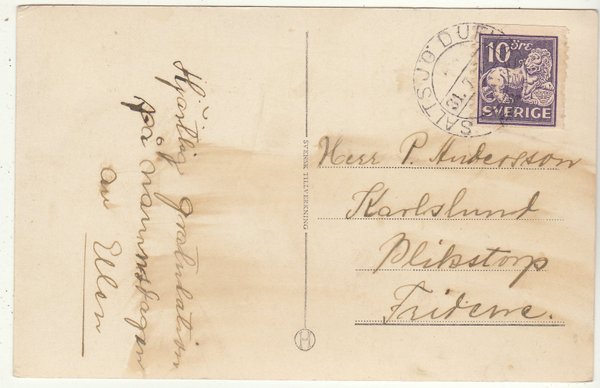 Hjärtlig gratulation
på namnsdagen
av Ellen
SVENSK TILLVERKNING
SALTSJÖ DU
31.
10 öre
SVERIGE
Herr P. Andersson
Karlslund
Blikstorp
Fridene.